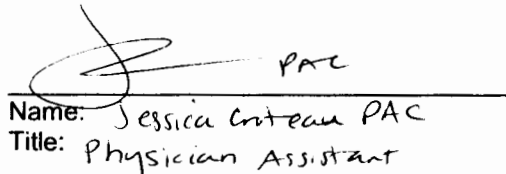 PAC
Name: Jessica Croteau PAC
Title: Physician Assistant